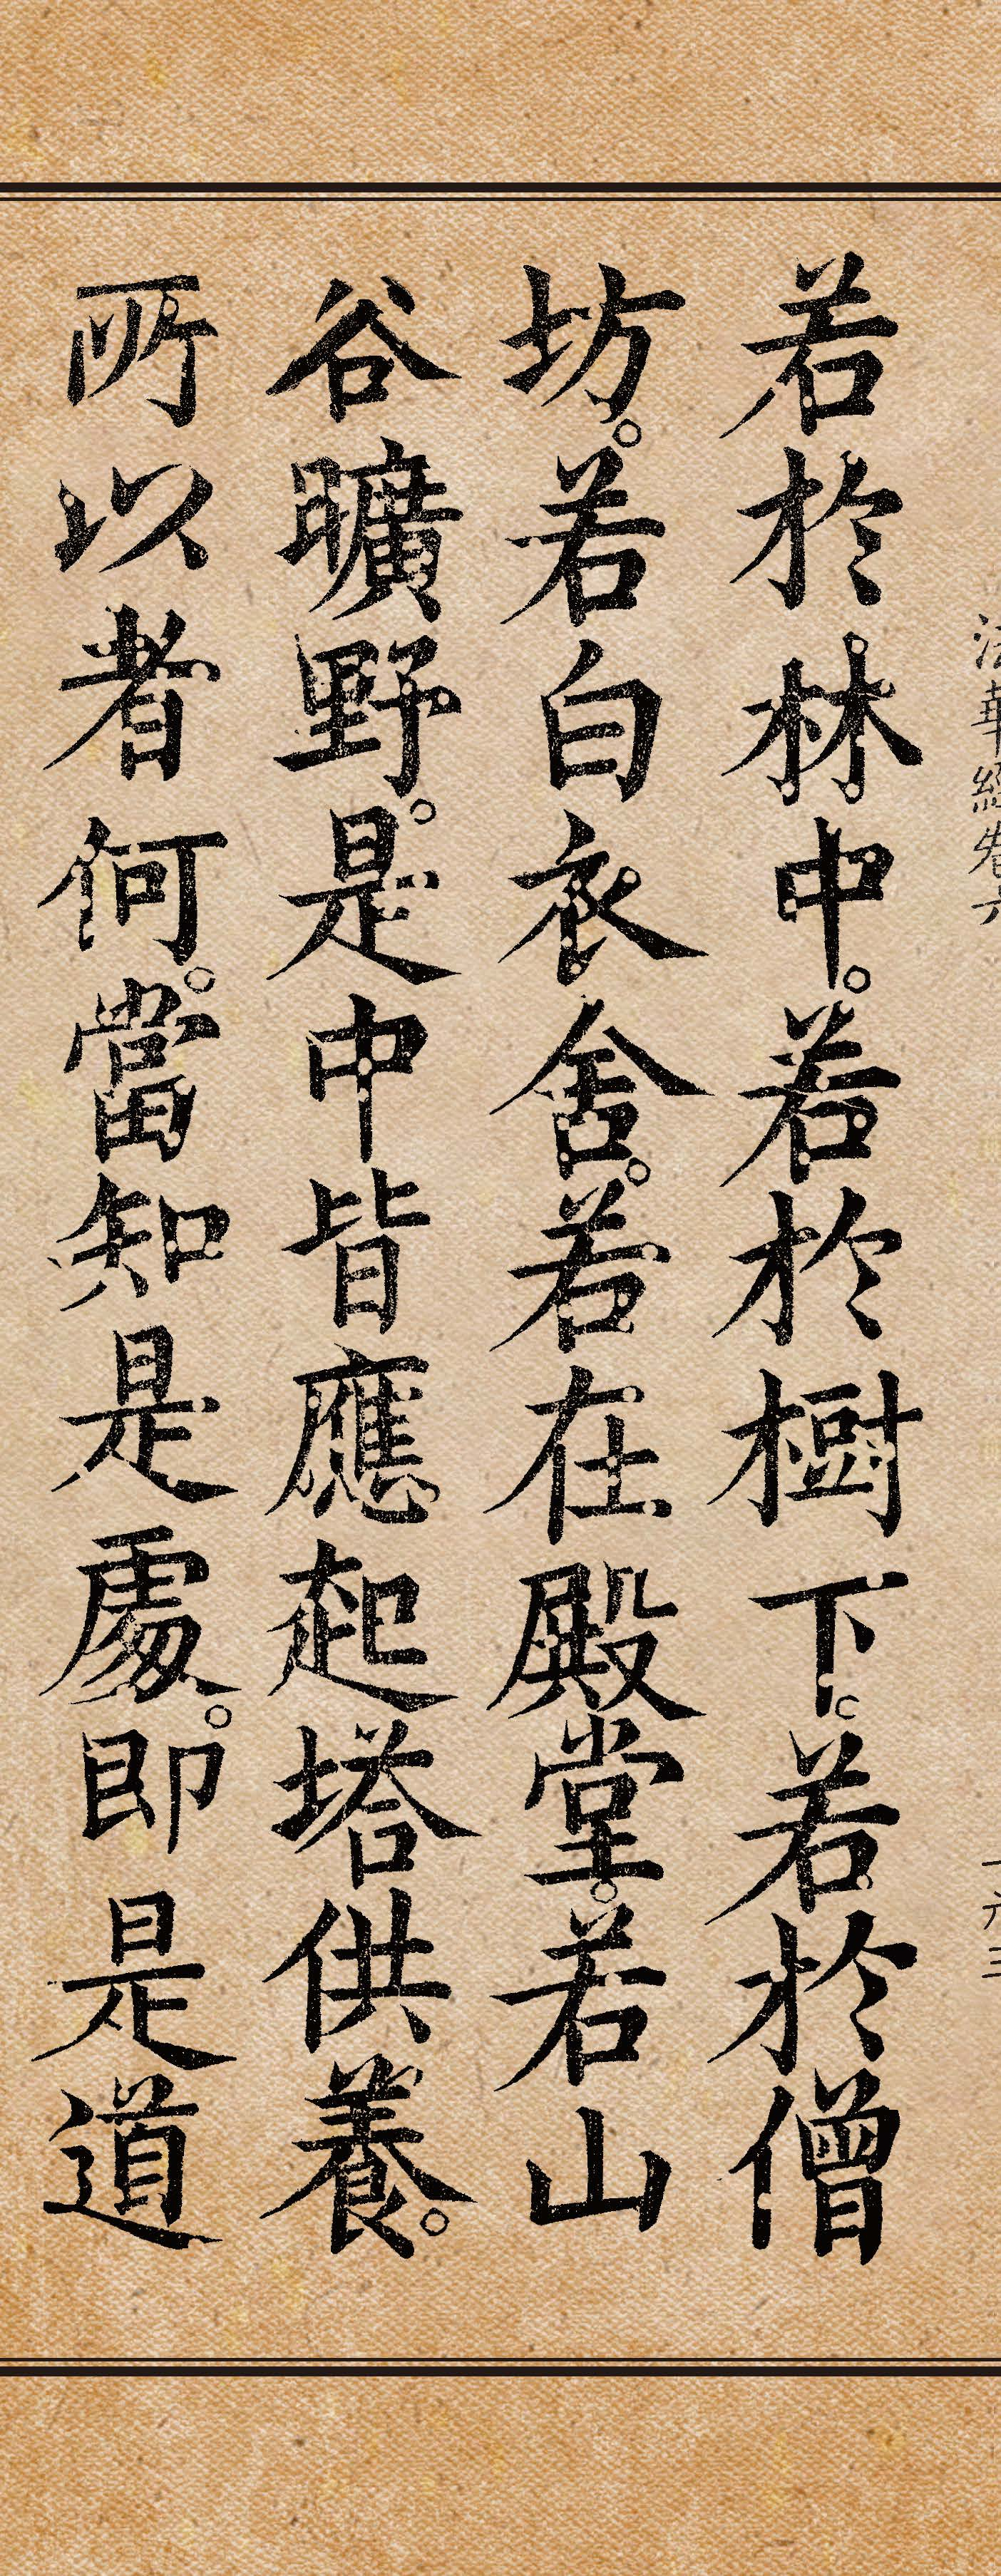 法華經卷六
一六三
若於林中。若於樹下。若於僧
坊。若白衣舍。若在殿堂。若山
谷曠野。是中皆應起塔供養。
所以者何。當知是處。即是道